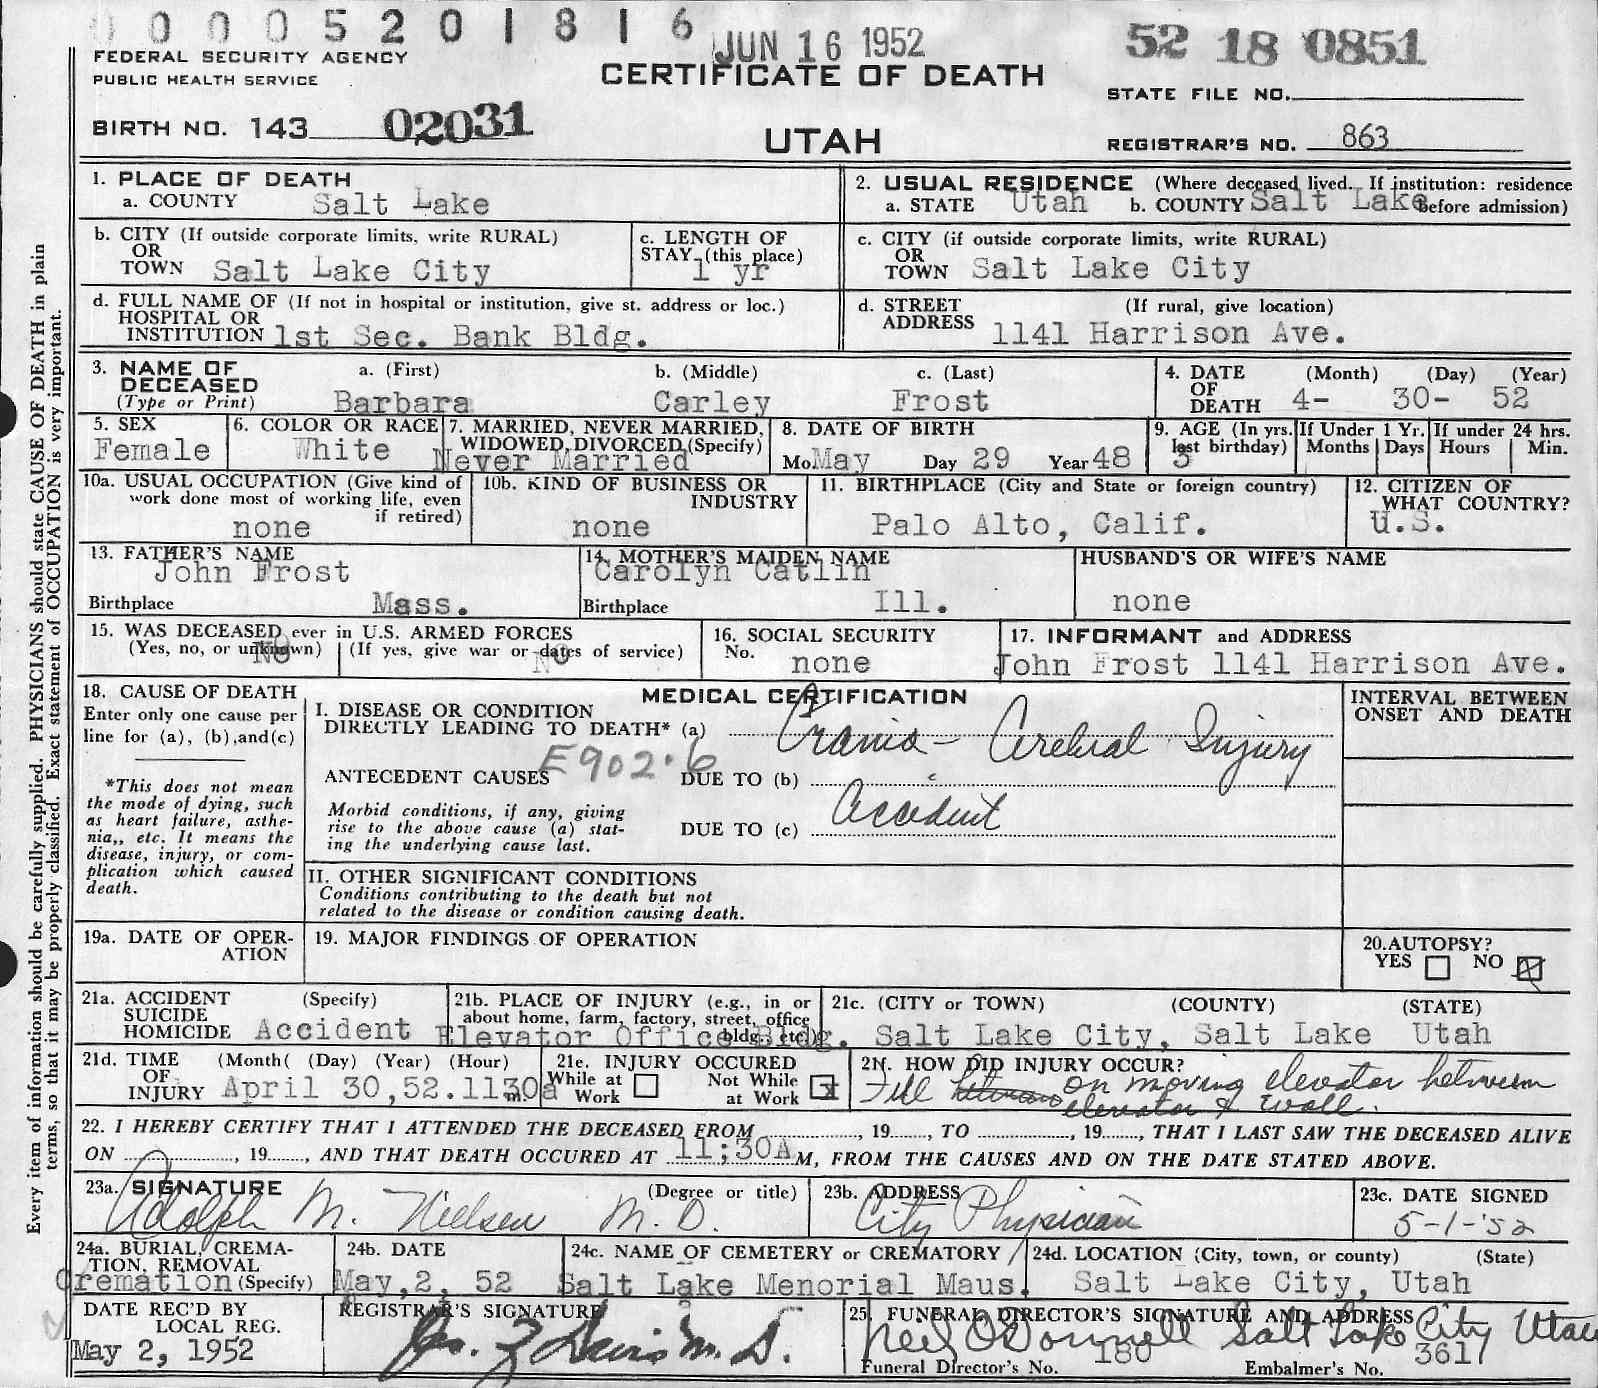 0000520 1816
JUN 16 1952
52 18 0851
FEDERAL SECURITY AGENCY
PUBLIC HEALTH SERVICE
CERTIFICATE OF DEATH
STATE FILE NO.
BIRTH NO. 143 02031
UTAH
REGISTRAR'S NO. 863
1. PLACE OF DEATH
a. COUNTY Salt Lake
2. USUAL RESIDENCE (Where deceased lived. If institution: residence before admission)
a. STATE Utah b. COUNTY Salt Lake
b. CITY (If outside corporate limits, write RURAL)
OR
TOWN Salt Lake City
c. LENGTH OF
STAY (this place)
1 yr
c. CITY (if outside corporate limits, write RURAL)
OR
TOWN Salt Lake City
d. FULL NAME OF (If not in hospital or institution, give st. address or loc.)
HOSPITAL OR
INSTITUTION 1st Sec. Bank Bldg.
d. STREET (If rural, give location)
ADDRESS 1141 Harrison Ave.
3. NAME OF
DECEASED
(Type or Print)
a. (First) b. (Middle) c. (Last)
Barbara Carley Frost
4. DATE (Month) (Day) (Year)
OF
DEATH 4- 30- 52
5. SEX
Female
6. COLOR OR RACE
White
7. MARRIED, NEVER MARRIED,
WIDOWED, DIVORCED (Specify)
Never Married
8. DATE OF BIRTH
Mo. May Day 29 Year 48
9. AGE (In yrs. last birthday)
3
If Under 1 Yr.
Months Days
If under 24 hrs.
Hours Min.
10a. USUAL OCCUPATION (Give kind of
work done most of working life, even
if retired)
none
10b. KIND OF BUSINESS OR
INDUSTRY
none
11. BIRTHPLACE (City and State or foreign country)
Palo Alto, Calif.
12. CITIZEN OF
WHAT COUNTRY?
U.S.
13. FATHER'S NAME
John Frost
Birthplace Mass.
14. MOTHER'S MAIDEN NAME
Carolyn Catlin
Birthplace Ill.
HUSBAND'S OR WIFE'S NAME
none
15. WAS DECEASED ever in U.S. ARMED FORCES
(Yes, no, or unknown) (If yes, give war or dates of service)
No No
16. SOCIAL SECURITY
No.
none
17. INFORMANT and ADDRESS
John Frost 1141 Harrison Ave.
18. CAUSE OF DEATH
Enter only one cause per
line for (a), (b), and(c)
*This does not mean
the mode of dying, such
as heart failure, asthe-
nia,, etc. It means the
disease, injury, or com-
plication which caused
death.
MEDICAL CERTIFICATION
I. DISEASE OR CONDITION
DIRECTLY LEADING TO DEATH* (a) Cranio- Cerebral Injury
E902.6
ANTECEDENT CAUSES DUE TO (b)
Morbid conditions, if any, giving
rise to the above cause (a) stat-
ing the underlying cause last.
DUE TO (c) Accident
II. OTHER SIGNIFICANT CONDITIONS
Conditions contributing to the death but not
related to the disease or condition causing death.
INTERVAL BETWEEN
ONSET AND DEATH
19a. DATE OF OPER-
ATION
19. MAJOR FINDINGS OF OPERATION
20. AUTOPSY?
YES NO X
21a. ACCIDENT (Specify)
SUICIDE
HOMICIDE Accident
21b. PLACE OF INJURY (e.g., in or
about home, farm, factory, street, office
bldg., etc.)
Elevator Office Bldg.
21c. (CITY or TOWN) (COUNTY) (STATE)
Salt Lake City, Salt Lake Utah
21d. TIME (Month( (Day) (Year) (Hour)
OF
INJURY April 30,52. 1130a m.
21e. INJURY OCCURED
While at Work Not While at Work x
21f. HOW DID INJURY OCCUR?
Fell between on moving elevator between
elevator & wall.
22. I HEREBY CERTIFY THAT I ATTENDED THE DECEASED FROM , 19 , TO , 19 , THAT I LAST SAW THE DECEASED ALIVE
ON , 19 , AND THAT DEATH OCCURED AT 11;30A M, FROM THE CAUSES AND ON THE DATE STATED ABOVE.
23a. SIGNATURE (Degree or title)
Adolph M. Nielsen M.D.
23b. ADDRESS
City Physician
23c. DATE SIGNED
5-1-'52
24a. BURIAL, CREMA-
TION, REMOVAL
Cremation (Specify)
24b. DATE
May,2, 52
24c. NAME OF CEMETERY or CREMATORY
Salt Lake Menorial Maus.
24d. LOCATION (City, town, or county) (State)
Salt Lake City, Utah
DATE REC'D BY
LOCAL REG.
May 2, 1952
REGISTRAR'S SIGNATURE
Davis M.D.
25. FUNERAL DIRECTOR'S SIGNATURE AND ADDRESS
Neil O'Donnell Salt Lake City Utah
Funeral Director's No. 180 Embalmer's No. 3617
Every item of information should be carefully supplied. PHYSICIANS should state CAUSE OF DEATH in plain
terms, so that it may be properly classified. Exact statement of OCCUPATION is very important.